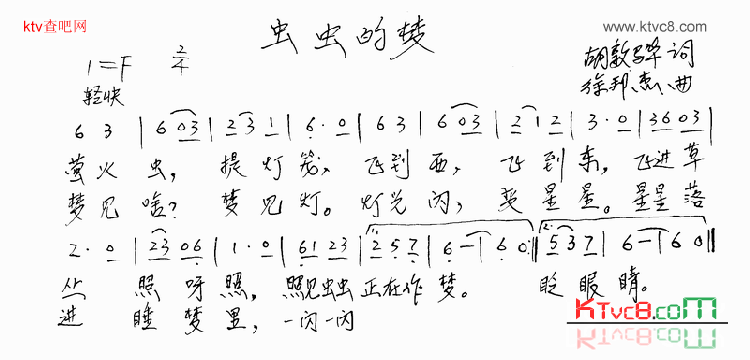 ktv查吧网
www.ktvc8.com
虫虫的梦
1=F 2/4
胡敦骅 词
徐邦杰 曲
轻快
6 3 | 6 0 3 | 2 3 1 | 6 · 0 | 6 3 | 6 0 3 | 2 1 2 | 3 · 0 | 3 6 0 3 |
萤火虫，提灯笼，飞到西，飞到东，飞进草
梦见啥？梦见灯。灯光闪，像星星。星星落
2 · 0 | 2 3 0 6 | 1 · 0 | 6 1 2 3 | 1. 2 5 7 | 6 - | 6 0 :| 2. 5 3 7 | 6 - | 6 0 ||
丛 照呀照，照见虫虫正在作梦。 眨眼睛。
进 睡梦里，一闪一闪
KTVc8.com
KTVc8.com